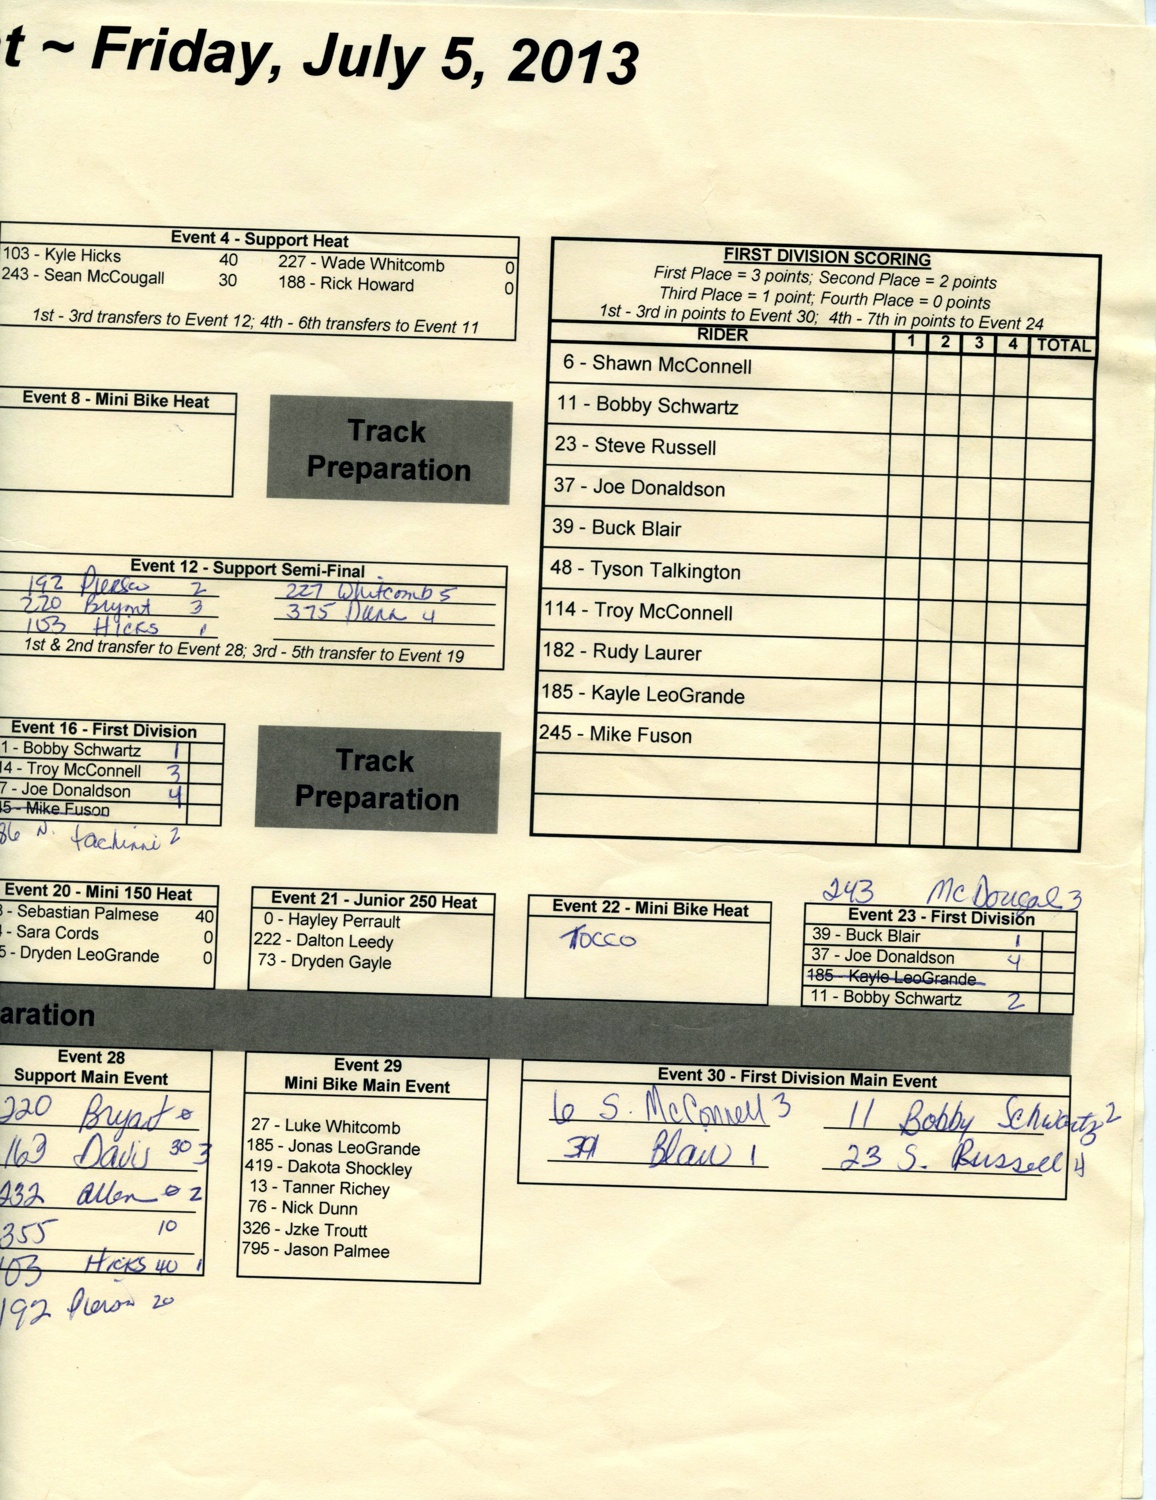 t ~ Friday, July 5, 2013
Event 4 - Support Heat
103 - Kyle Hicks 40 227 - Wade Whitcomb 0
243 - Sean McCougall 30 188 - Rick Howard 0
1st - 3rd transfers to Event 12; 4th - 6th transfers to Event 11
FIRST DIVISION SCORING
First Place = 3 points; Second Place = 2 points
Third Place = 1 point; Fourth Place = 0 points
1st - 3rd in points to Event 30; 4th - 7th in points to Event 24
RIDER 1 2 3 4 TOTAL
6 - Shawn McConnell
11 - Bobby Schwartz
23 - Steve Russell
37 - Joe Donaldson
39 - Buck Blair
48 - Tyson Talkington
114 - Troy McConnell
182 - Rudy Laurer
185 - Kayle LeoGrande
245 - Mike Fuson
Event 8 - Mini Bike Heat
Track
Preparation
Event 12 - Support Semi-Final
192 Pierson 2 227 Whitcomb 5
220 Bryant 3 375 Dunn 4
103 Hicks 1
1st & 2nd transfer to Event 28; 3rd - 5th transfer to Event 19
Event 16 - First Division
1 - Bobby Schwartz 1
14 - Troy McConnell 3
7 - Joe Donaldson 4
5 - Mike Fuson
86 N. 2
Track
Preparation
Event 20 - Mini 150 Heat
- Sebastian Palmese 40
- Sara Cords 0
5 - Dryden LeoGrande 0
Event 21 - Junior 250 Heat
0 - Hayley Perrault
222 - Dalton Leedy
73 - Dryden Gayle
Event 22 - Mini Bike Heat
Tocco
243 McDougal 3
Event 23 - First Division
39 - Buck Blair 1
37 - Joe Donaldson 4
185 - Kayle LeoGrande
11 - Bobby Schwartz 2
aration
Event 28
Support Main Event
220 Bryant 0
163 Davis 30 3
232 Allen 0 2
355 10
103 Hicks 40 1
192 Pierson 20
Event 29
Mini Bike Main Event
27 - Luke Whitcomb
185 - Jonas LeoGrande
419 - Dakota Shockley
13 - Tanner Richey
76 - Nick Dunn
326 - Jzke Troutt
795 - Jason Palmee
Event 30 - First Division Main Event
6 S. McConnell 3 11 Bobby Schwartz 2
39 Blair 1 23 S. Russell 4